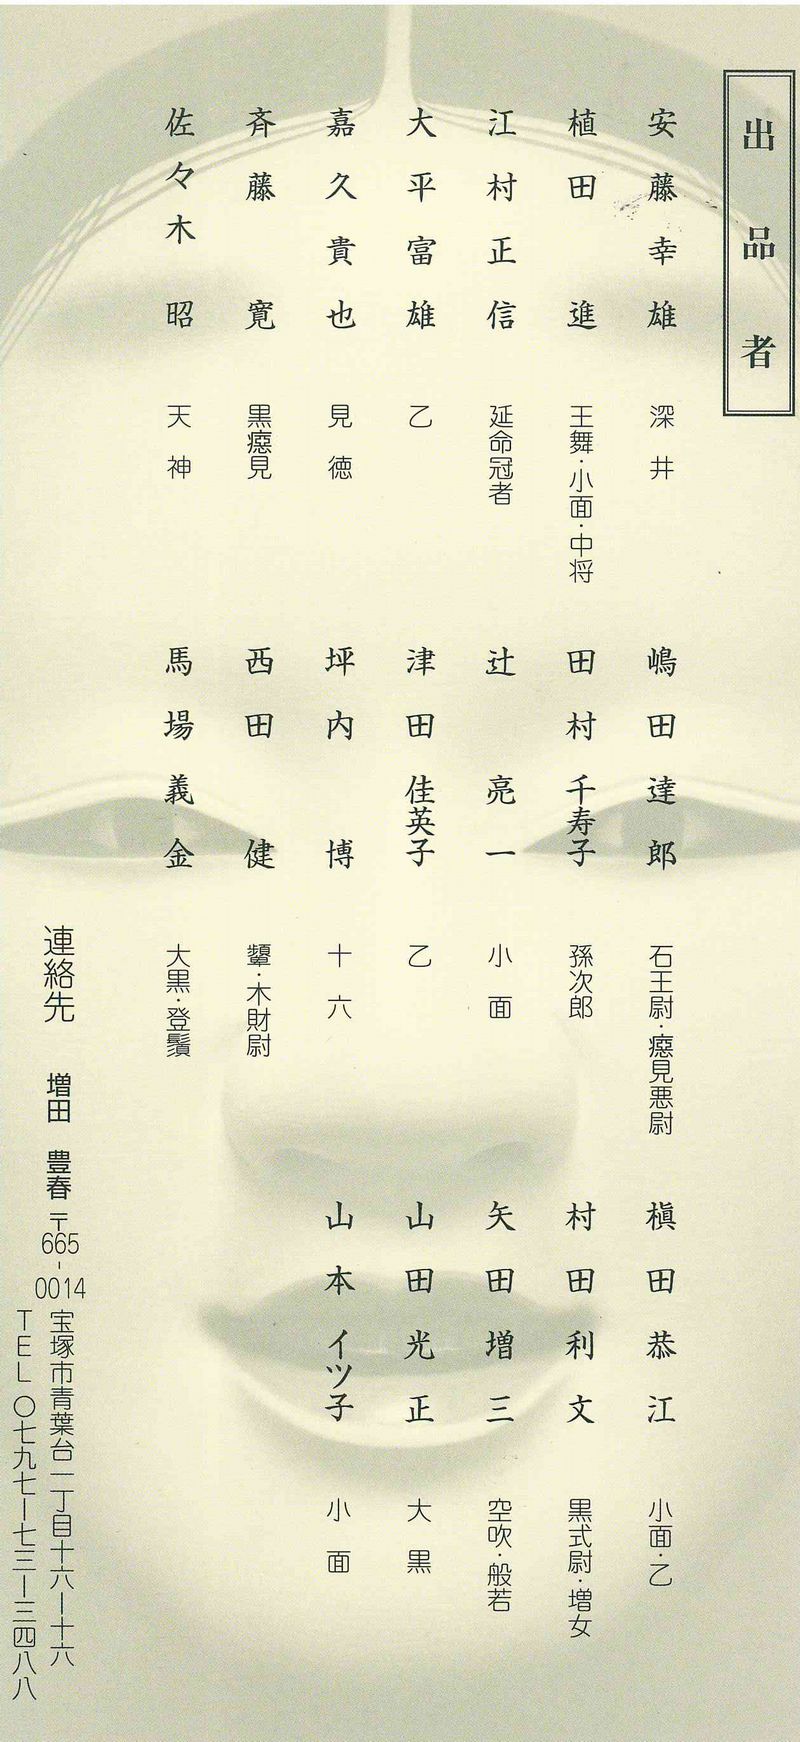 出品者
安藤幸雄 深井
植田進 王舞・小面・中将
江村正信 延命冠者
大平富雄 乙
嘉久貴也 見徳
斉藤寛 黒癋見
佐々木昭 天神
嶋田達郎 石王尉・癋見悪尉
田村千寿子 孫次郎
辻亮一 小面
津田佳英子 乙
坪内博 十六
西田健 顰・木財尉
馬場義金 大黒・登鬚
槇田恭江 小面・乙
村田利文 黒式尉・増女
矢田増三 空吹・般若
山田光正 大黒
山本イツ子 小面
連絡先 増田豊春 〒665-0014 宝塚市青葉台一丁目十六ー十六
TEL〇七九七ー七三ー三四八八